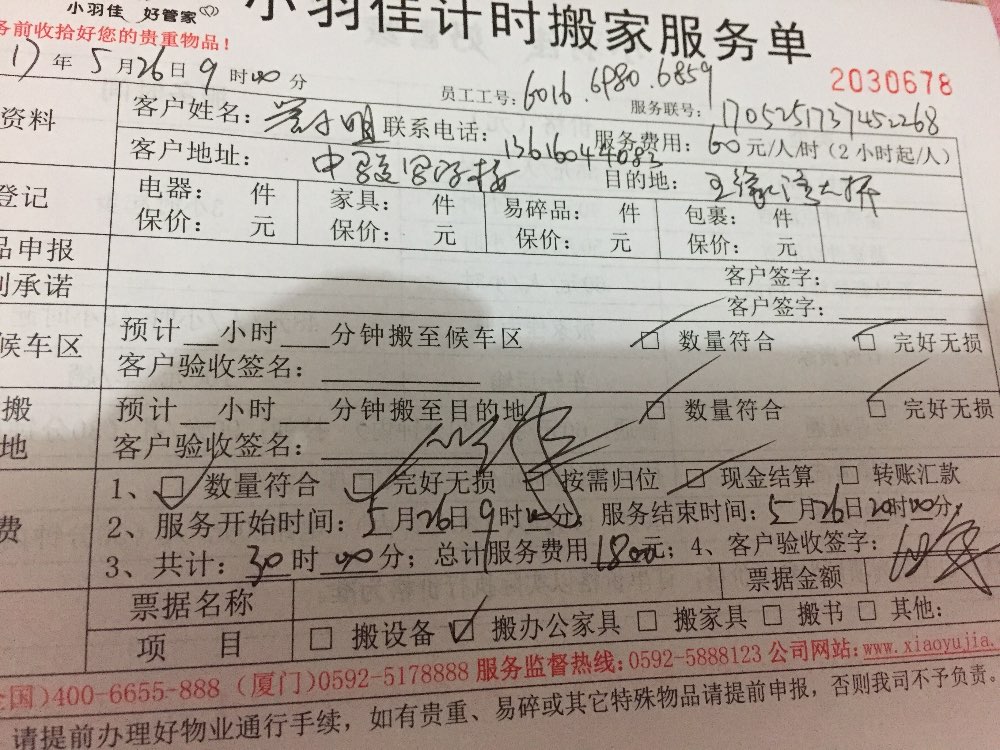 小羽佳 好管家
小羽佳计时搬家服务单
务前收拾好您的贵重物品！
2030678
17年5月26日9时00分
员工工号：6016.6980.6859
服务联号：1705251737452268
资料
客户姓名： 小姐 联系电话：13616044083 服务费用：60元/人/时（2小时起/人）
客户地址： 目的地：
登记
电器： 件 家具： 件 易碎品： 件 包裹： 件
保价： 元 保价： 元 保价： 元 保价： 元
品申报
客户签字：
别承诺
客户签字：
候车区
预计__小时__分钟搬至候车区 □ 数量符合 □ 完好无损
客户验收签名：
搬
预计__小时__分钟搬至目的地 □ 数量符合 □ 完好无损
地
客户验收签名：
1、□ 数量符合 □ 完好无损 □ 按需归位 □ 现金结算 □ 转账汇款
费
2、服务开始时间：5月26日9时00分；服务结束时间：5月26日20时00分；
3、共计：30时00分；总计服务费用1800元；4、客户验收签字：
票据名称 票据金额
项 目 □ 搬设备 ☑ 搬办公家具 □ 搬家具 □ 搬书 □ 其他：
全国)400-6655-888 (厦门)0592-5178888 服务监督热线：0592-5888123 公司网站：www.xiaoyujia.
请提前办理好物业通行手续，如有贵重、易碎或其它特殊物品请提前申报，否则我司不予负责。